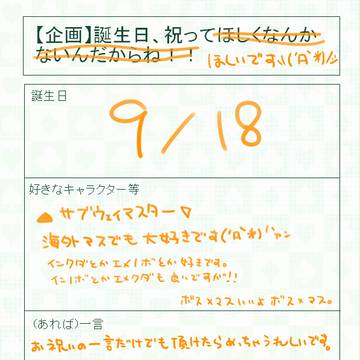 【企画】誕生日、祝ってほしくなんか
ないんだからね！！ ほしいです
誕生日
9/18
好きなキャラクター等
▲サブウェイマスター▽
海外マスでも大好きです('Д`*)ハァン
インクダとかエメノボとか好きです。
インノボとかエメクダも良いですか!!
ボス×マスいいよボス×マス。
(あれば)一言
お祝いの一言だけでも頂けたらめっちゃうれしいです。